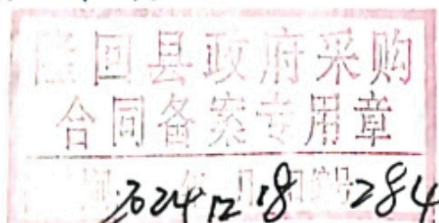 隆回县政府采购
合同备案专用章
2024 12 18 284